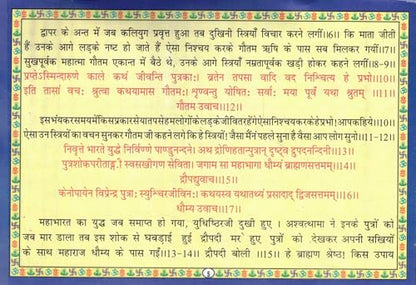 द्वापर के अन्त में जब कलियुग प्रवृत्त हुआ तब दुखिनी स्त्रियाँ विचार करने लगीं।।6।। कि माता जीती
हैं उनके आगे लड़के नष्ट हो जाते हैं ऐसा निश्चय करके गौतम ऋषि के पास सब मिलकर गयीं।।7।।
सुखपूर्वक महात्मा गौतम एकान्त में बैठे थे, उनके आगे स्त्रियाँ नम्रतापूर्वक खड़ी होकर कहने लगीं।।8-9।।
प्राप्तेऽस्मिन्दारुणे काले कथं जीवन्ति पुत्रकाः। व्रतेन तपसा वापि वद निश्चित्य हे प्रभो।।10।।
इति तासां वचः श्रुत्वा कथयामास गौतमः। शृण्वन्तु योषितः सर्वाः मया पूर्वं यथा श्रुतम् ।।11।।
गौतम उवाच।।12।।
इस भयंकर समय में किस प्रकार से या तप से हम लोगों के लड़के जीवित रहेंगे ऐसा निश्चय कर कहे हे प्रभो! आप कहिये।।10।।
ऐसा उन स्त्रियों का वचन सुनकर गौतम जी कहने लगे कि हे स्त्रियों! जैसा मैंने पहले सुना है वैसा आप लोग सुनो।।11-12।।
निवृत्ते भारते युद्धे निर्विण्णे पाण्डुनन्दने। अथ द्रोणिहतान्पुत्रान् दृष्ट्वा द्रुपदनन्दिनी।।13।।
पुत्रशोकपरीताङ्गी स्वसखीगण सेविता। जगाम सा महाभागा धौम्यं ब्राह्मणसत्तमम्।।14।।
द्रौपद्युवाच।।15।।
केनोपायेन विप्रेन्द्र पुत्राः स्युश्चिरजीविनः। कथयस्व यथातथ्यं प्रसादाद् द्विजसत्तमम्।।16।।
धौम्य उवाच।।17।।
महाभारत का युद्ध जब समाप्त हो गया, युधिष्ठिरजी दुखी हुए । अश्वत्थामा ने इनके पुत्रों को
जब मार डाला तब इस शोक से घबड़ाई हुई द्रौपदी मरे हुए पुत्रों को देखकर अपनी सखियों
के साथ महाराज धौम्य के पास गईं।।13-14।। द्रौपदी बोली ।।15।। हे ब्राह्मण श्रेष्ठ! किस उपाय
5